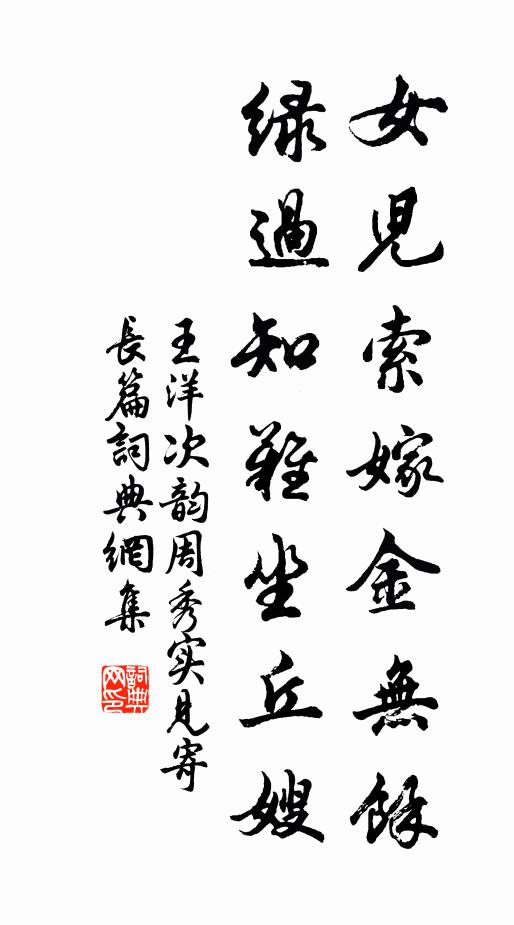 女児索嫁金無餘
緑過知難坐丘嫂
王洋次韵周秀实見寄
長篇詞典網集
詞典
网印